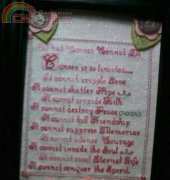 What Cancer Cannot Do
Cancer is so limited...
It cannot cripple Love
It cannot shatter Hope
It cannot corrode Faith
It cannot destroy Peace
It cannot kill Friendship
It cannot suppress Memories
It cannot silence Courage
It cannot invade the Soul
It cannot steal Eternal Life
It cannot conquer the Spirit